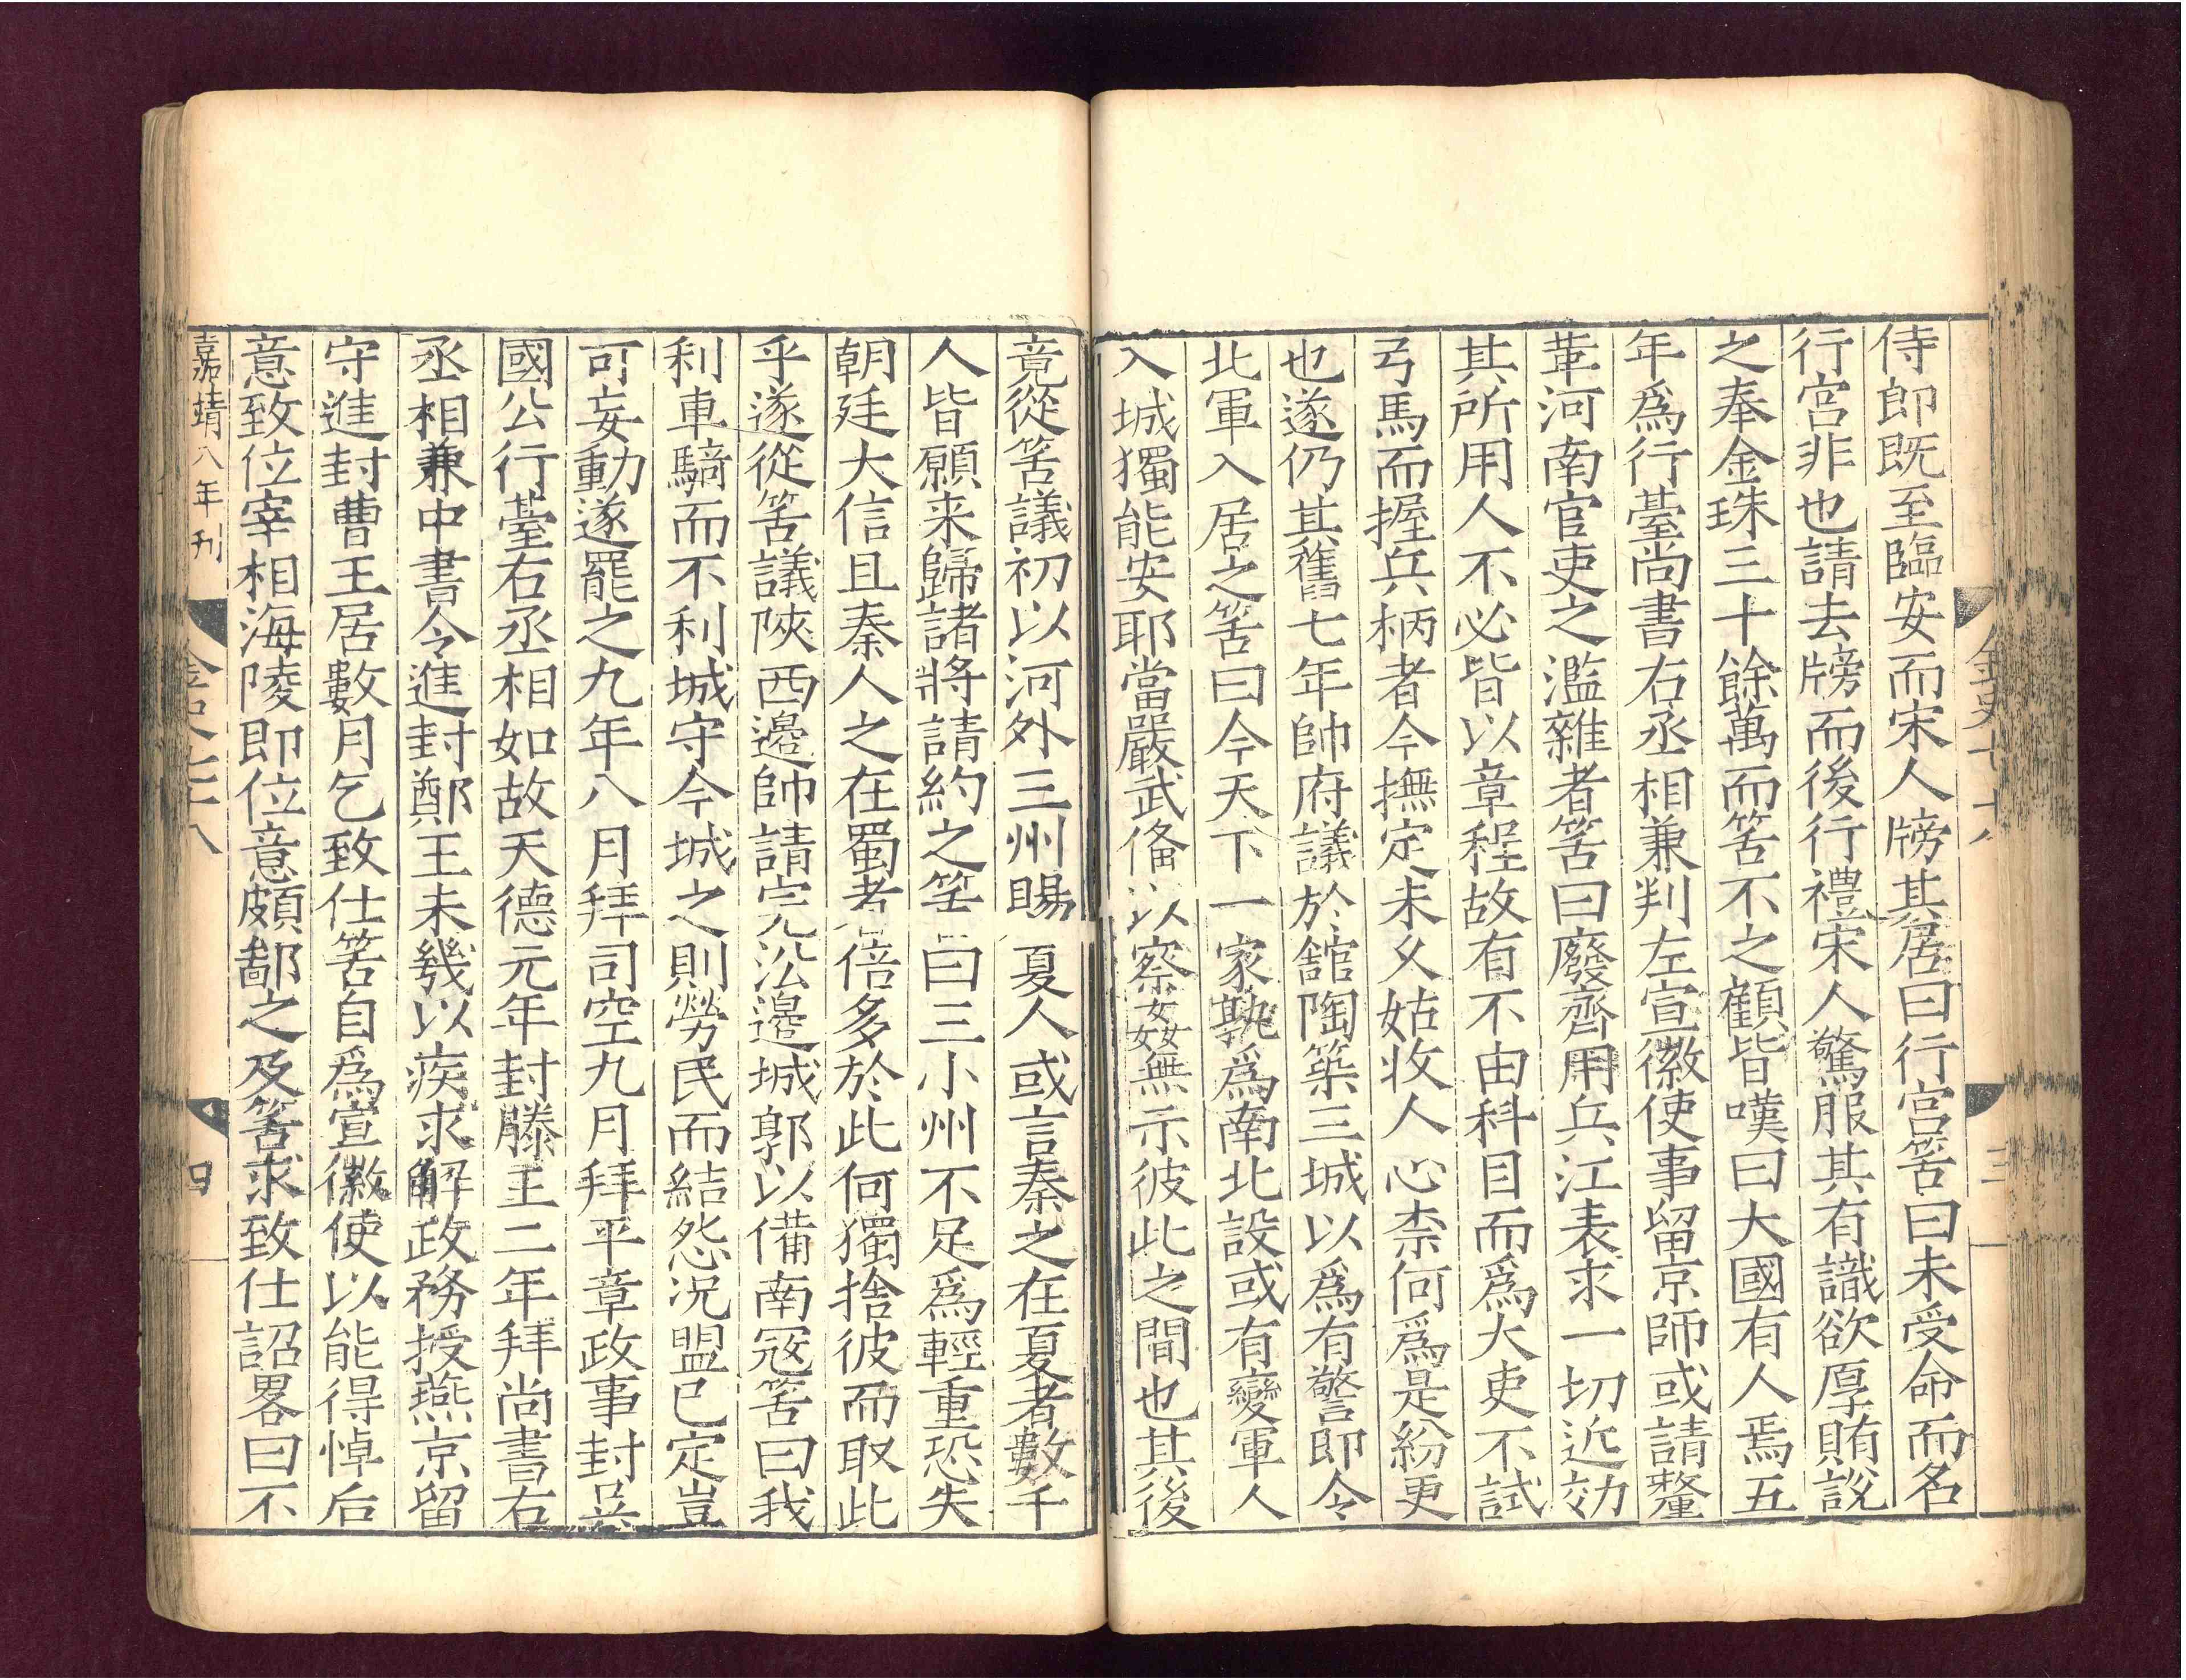 侍郎既至臨安而宋人牓其居曰行宫筈曰未受命而名
行宫非也請去牓而後行禮宋人驚服其有識欲厚賄説
之奉金珠三十餘萬而筈不之顧皆嘆曰大國有人焉五
年爲行臺尚書右丞相兼判左宣徽使事留京師或請釐
革河南官吏之濫雜者筈曰廢齊用兵江表求一切近効
其所用人不必皆以章程故有不由科目而爲大吏不試
弓馬而握兵柄者今撫定未久姑收人心柰何爲是紛更
也遂仍其舊七年帥府議於館陶築三城以爲有警即令
北軍入居之筈曰今天下一家孰爲南北設或有變軍人
入城獨能安耶當嚴武俻以察姦無示彼此之間也其後
竟從筈議初以河外三州賜夏人或言秦之在夏者數千
人皆願来歸諸將請約之筈曰三小州不足爲輕重恐失
朝廷大信且秦人之在蜀者倍多於此何獨捨彼而取此
乎遂從筈議陝西邊帥請完沿邊城郭以備南冦筈曰我
利車騎而不利城守今城之則勞民而結怨况盟已定豈
可妄動遂罷之九年八月拜司空九月拜平章政事封吳
國公行臺右丞相如故天德元年封滕王二年拜尚書右
丞相兼中書令進封鄭王未幾以疾求解政務授燕京留
守進封曹王居數月乞致仕筈自爲宣徽使以能得悼后
意致位宰相海陵即位意頗鄙之及筈求致仕詔畧曰不
嘉靖八年刊
金史七十八
四